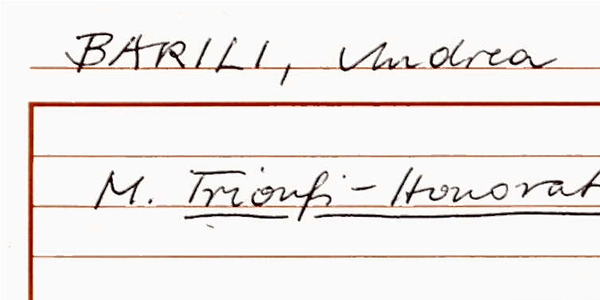 BARILI, Andrea
M. Trionfi-Honorat